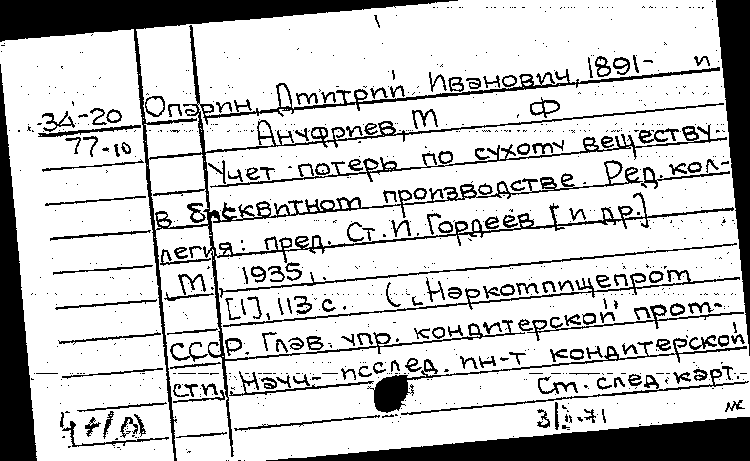 34-20 Опарин, Дмитрий Иванович, 1891- и
77-10 Ануфриев, М Ф
Учет потерь по сухому веществу
в бисквитном производстве. Ред. кол-
легия: пред. Ст. И. Гордеев [и др.]
М., 1935,.
[1], 113 с. (Наркомпищепром
СССР. Глав. упр. кондитерской пром-
сти, Науч-исслед. ин-т кондитерской
См. след. карт.
3/II-71